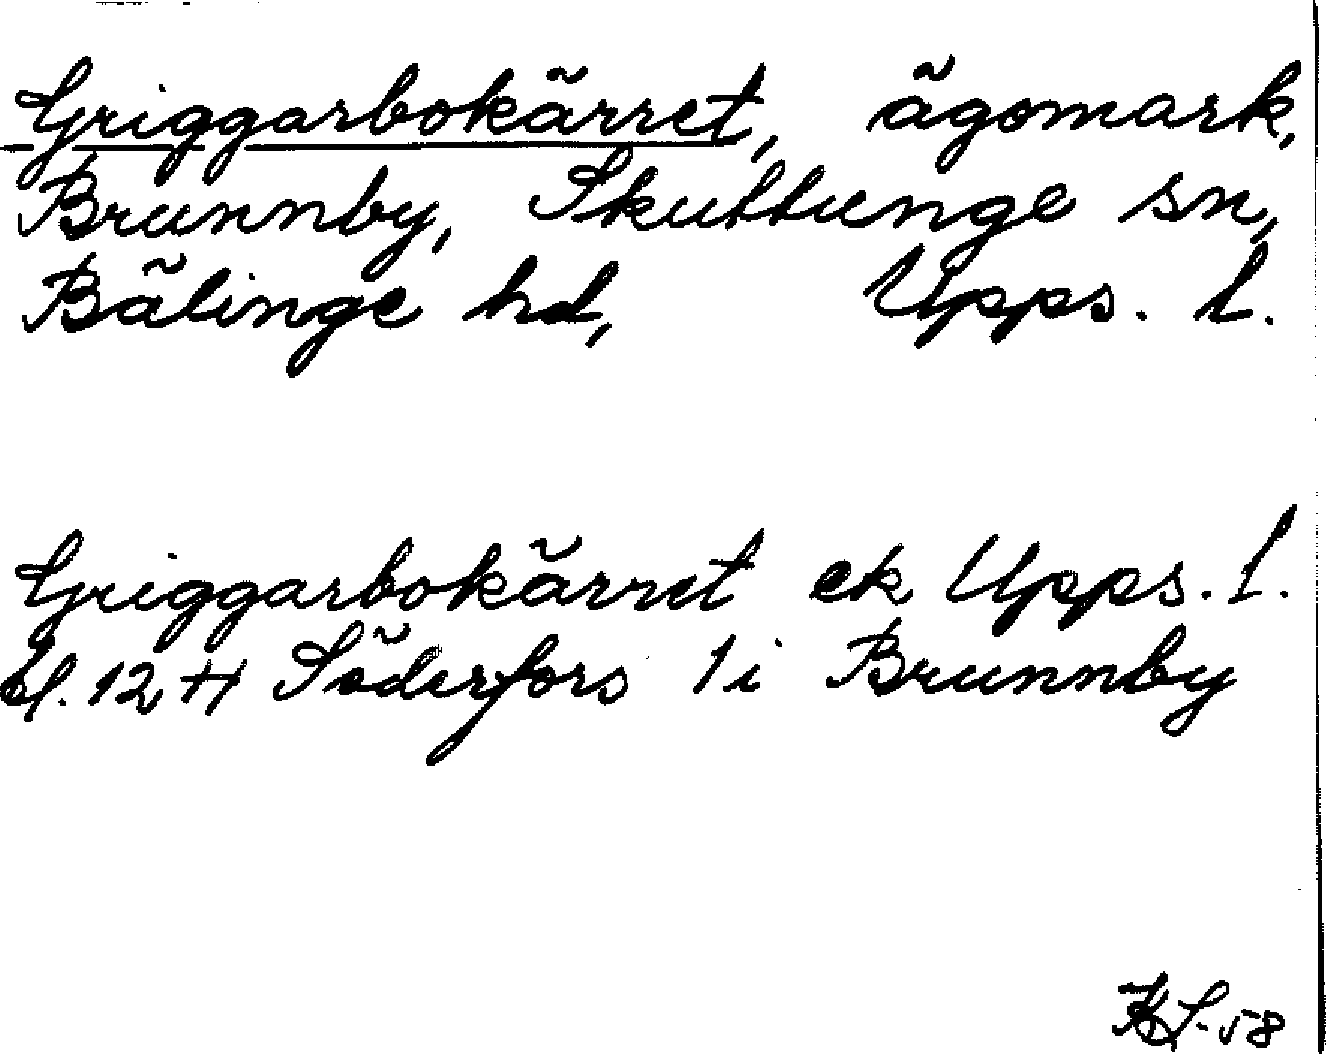 Griggarbokärret, ägomark,
Brunnby, Skuttunge sn,
Bälinge hd, Upps. l.
Griggarbokärret ek Upps. l.
bl. 12 H Söderfors 1 i Brunnby
KS-58